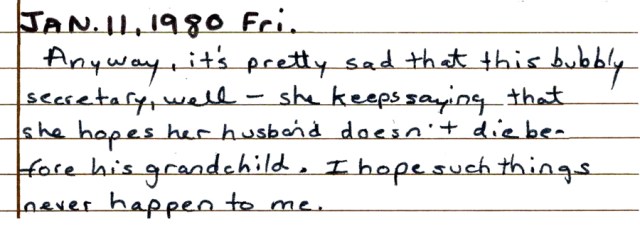 JAN.11,1980 Fri.
Anyway, it's pretty sad that this bubbly
secretary, well - she keeps saying that
she hopes her husband doesn't die be-
fore his grandchild. I hope such things
never happen to me.